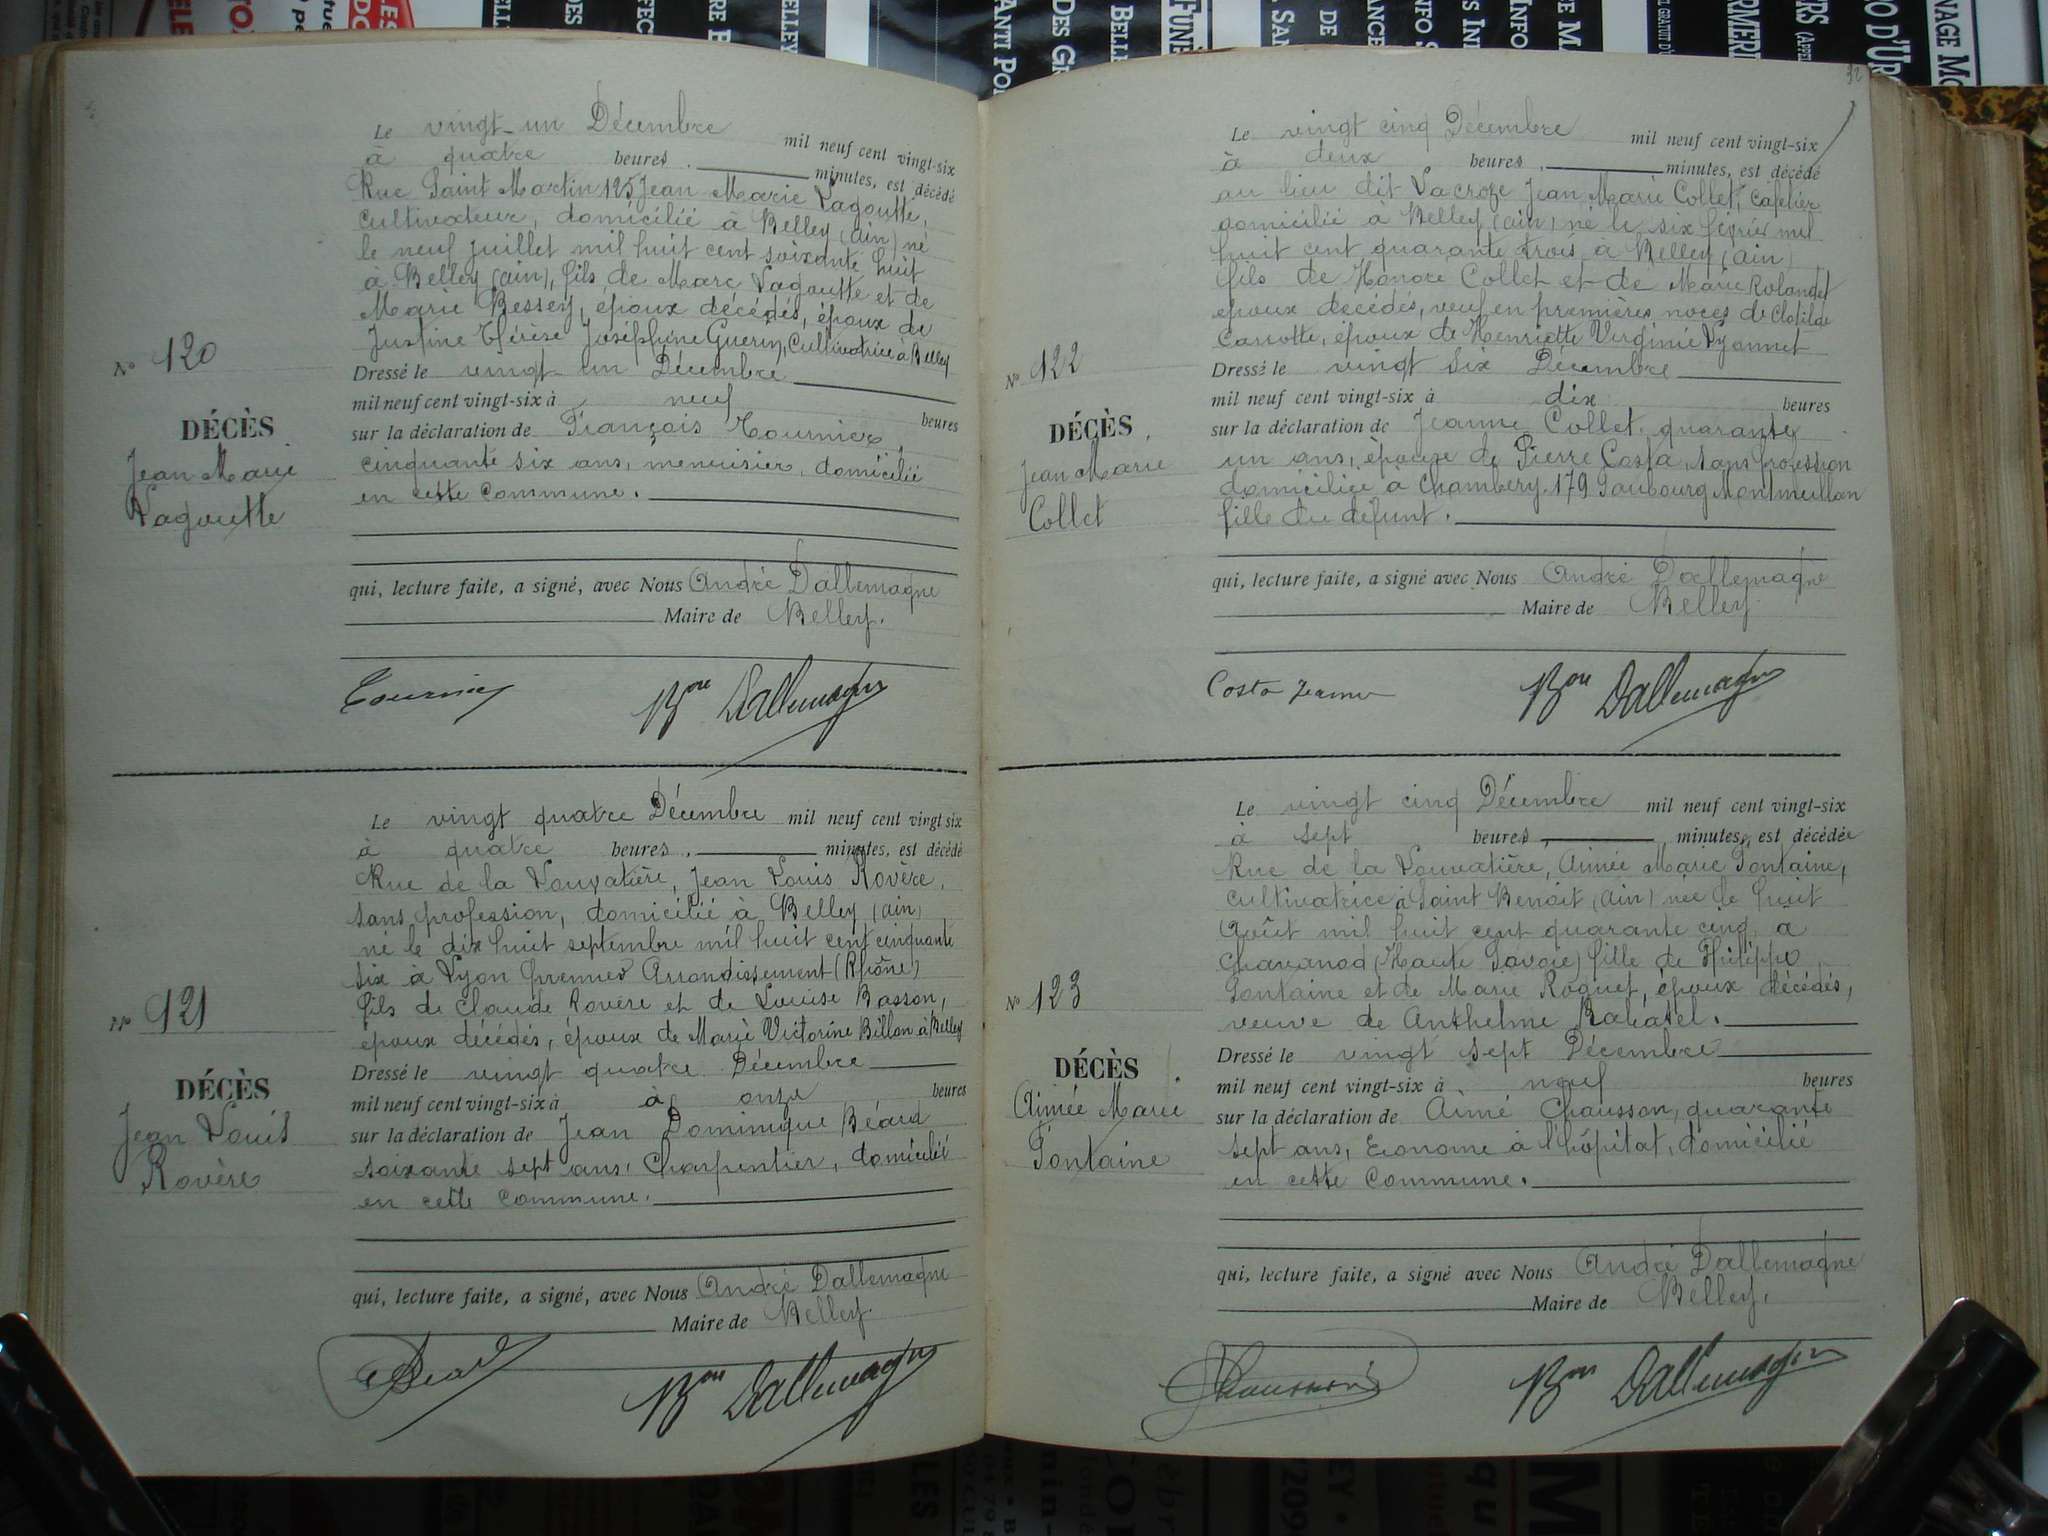 Le vingt-un Décembre mil neuf cent vingt-six
à quatre heures minutes, est décédé
Rue Saint Martin 125 Jean Marie Lagoutte,
cultivateur, domicilié à Belley (ain) né
le neuf juillet mil huit cent soixante huit
à Belley (ain), fils de Marc Lagoutte et de
Marie Bessey, époux décédés, époux de
Justine Thérèse Joséphine Guerin, Cultivatrice à Belley
N° 120
DÉCÈS
Jean Marie
Lagoutte
Dressé le vingt un Décembre
mil neuf cent vingt-six à neuf heures
sur la déclaration de François Tournier,
cinquante six ans, menuisier, domicilié
en cette commune.
qui, lecture faite, a signé, avec Nous André Dallemagne
Maire de Belley.
Tournier Bon Dallemagne
Le vingt quatre Décembre mil neuf cent vingt six
à quatre heures, minutes, est décédé
Rue de la Louvatière, Jean Louis Rovère,
sans profession, domicilié à Belley (ain)
né le dix huit septembre mil huit cent cinquante
six à Lyon premier Arrondissement (Rhône)
fils de Claude Rovère et de Louise Basson,
époux décédés, époux de Marie Victorine Billon à Belley
N° 121
DÉCÈS
Jean Louis
Rovère
Dressé le vingt quatre Décembre
mil neuf cent vingt-six à à onze heures
sur la déclaration de Jean Dominique Béard
soixante sept ans, Charpentier, domicilié
en cette commune.
qui, lecture faite, a signé, avec Nous André Dallemagne
Maire de Belley.
Béard Bon Dallemagne
32
Le vingt cinq Décembre mil neuf cent vingt-six
à deux heures, minutes, est décédé
au lieu dit Lacroze Jean Marie Collet, cafetier
domicilié à Belley (ain) né le six février mil
huit cent quarante trois à Belley (ain)
fils de Honore Collet et de Marie Rolandet
époux décédés, veuf en premières noces de Clotilde
Carrotte, époux de Henriette Virginie Vyonnet
N° 122
DÉCÈS
Jean Marie
Collet
Dressé le vingt six Décembre
mil neuf cent vingt-six à dix heures
sur la déclaration de Jeanne Collet, quarante
un ans, épouse de Pierre Costa, sans profession
domiciliée à Chambéry 179 Faubourg Montmeillan
fille du défunt.
qui, lecture faite, a signé avec Nous André Dallemagne
Maire de Belley
Costa Jeanne Bon Dallemagne
Le vingt cinq Décembre mil neuf cent vingt-six
à sept heures, minutes, est décédée
Rue de la Louvatière, Aimée Marie Fontaine,
cultivatrice à Saint Benoit (Ain) née le huit
Août mil huit cent quarante cinq à
Chavanod (Haute Savoie) fille de Philippe
Fontaine et de Marie Roquet, époux décédés,
veuve de Anthelme Rabatel.
N° 123
DÉCÈS
Aimée Marie
Fontaine
Dressé le vingt sept Décembre
mil neuf cent vingt-six à neuf heures
sur la déclaration de Aimé Chausson, quarante
sept ans, Econome à l'hôpital, domicilié
en cette commune.
qui, lecture faite, a signé avec Nous André Dallemagne
Maire de Belley.
Chausson Bon Dallemagne